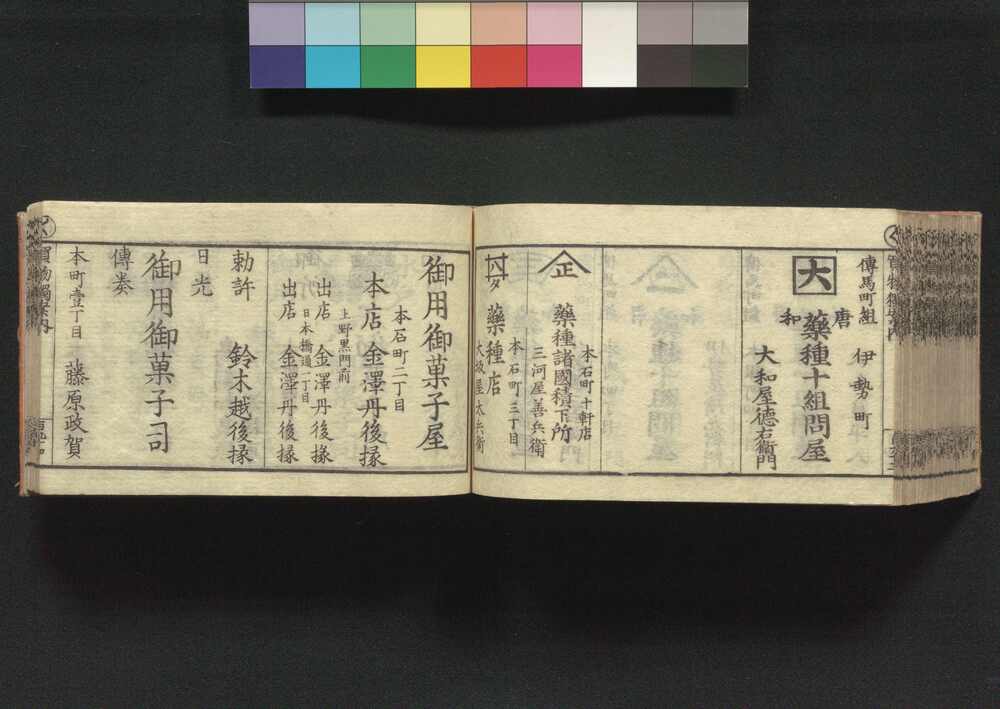 傳馬町組 伊勢町
大
唐和 藥種十組問屋
大和屋德右衛門
本石町十軒店
正 藥種諸國積下所
三河屋善兵衛
本石町三丁目
藥種店
大坂屋太兵衛
御用御菓子屋
本石町二丁目
本店 金澤丹後掾
上野黒門前
出店 金澤丹後掾
日本橋通二丁目
出店 金澤丹後掾
勅許 鈴木越後掾
日光
御用御菓子司
傳奏
本町壹丁目 藤原政賀
買物獨案内